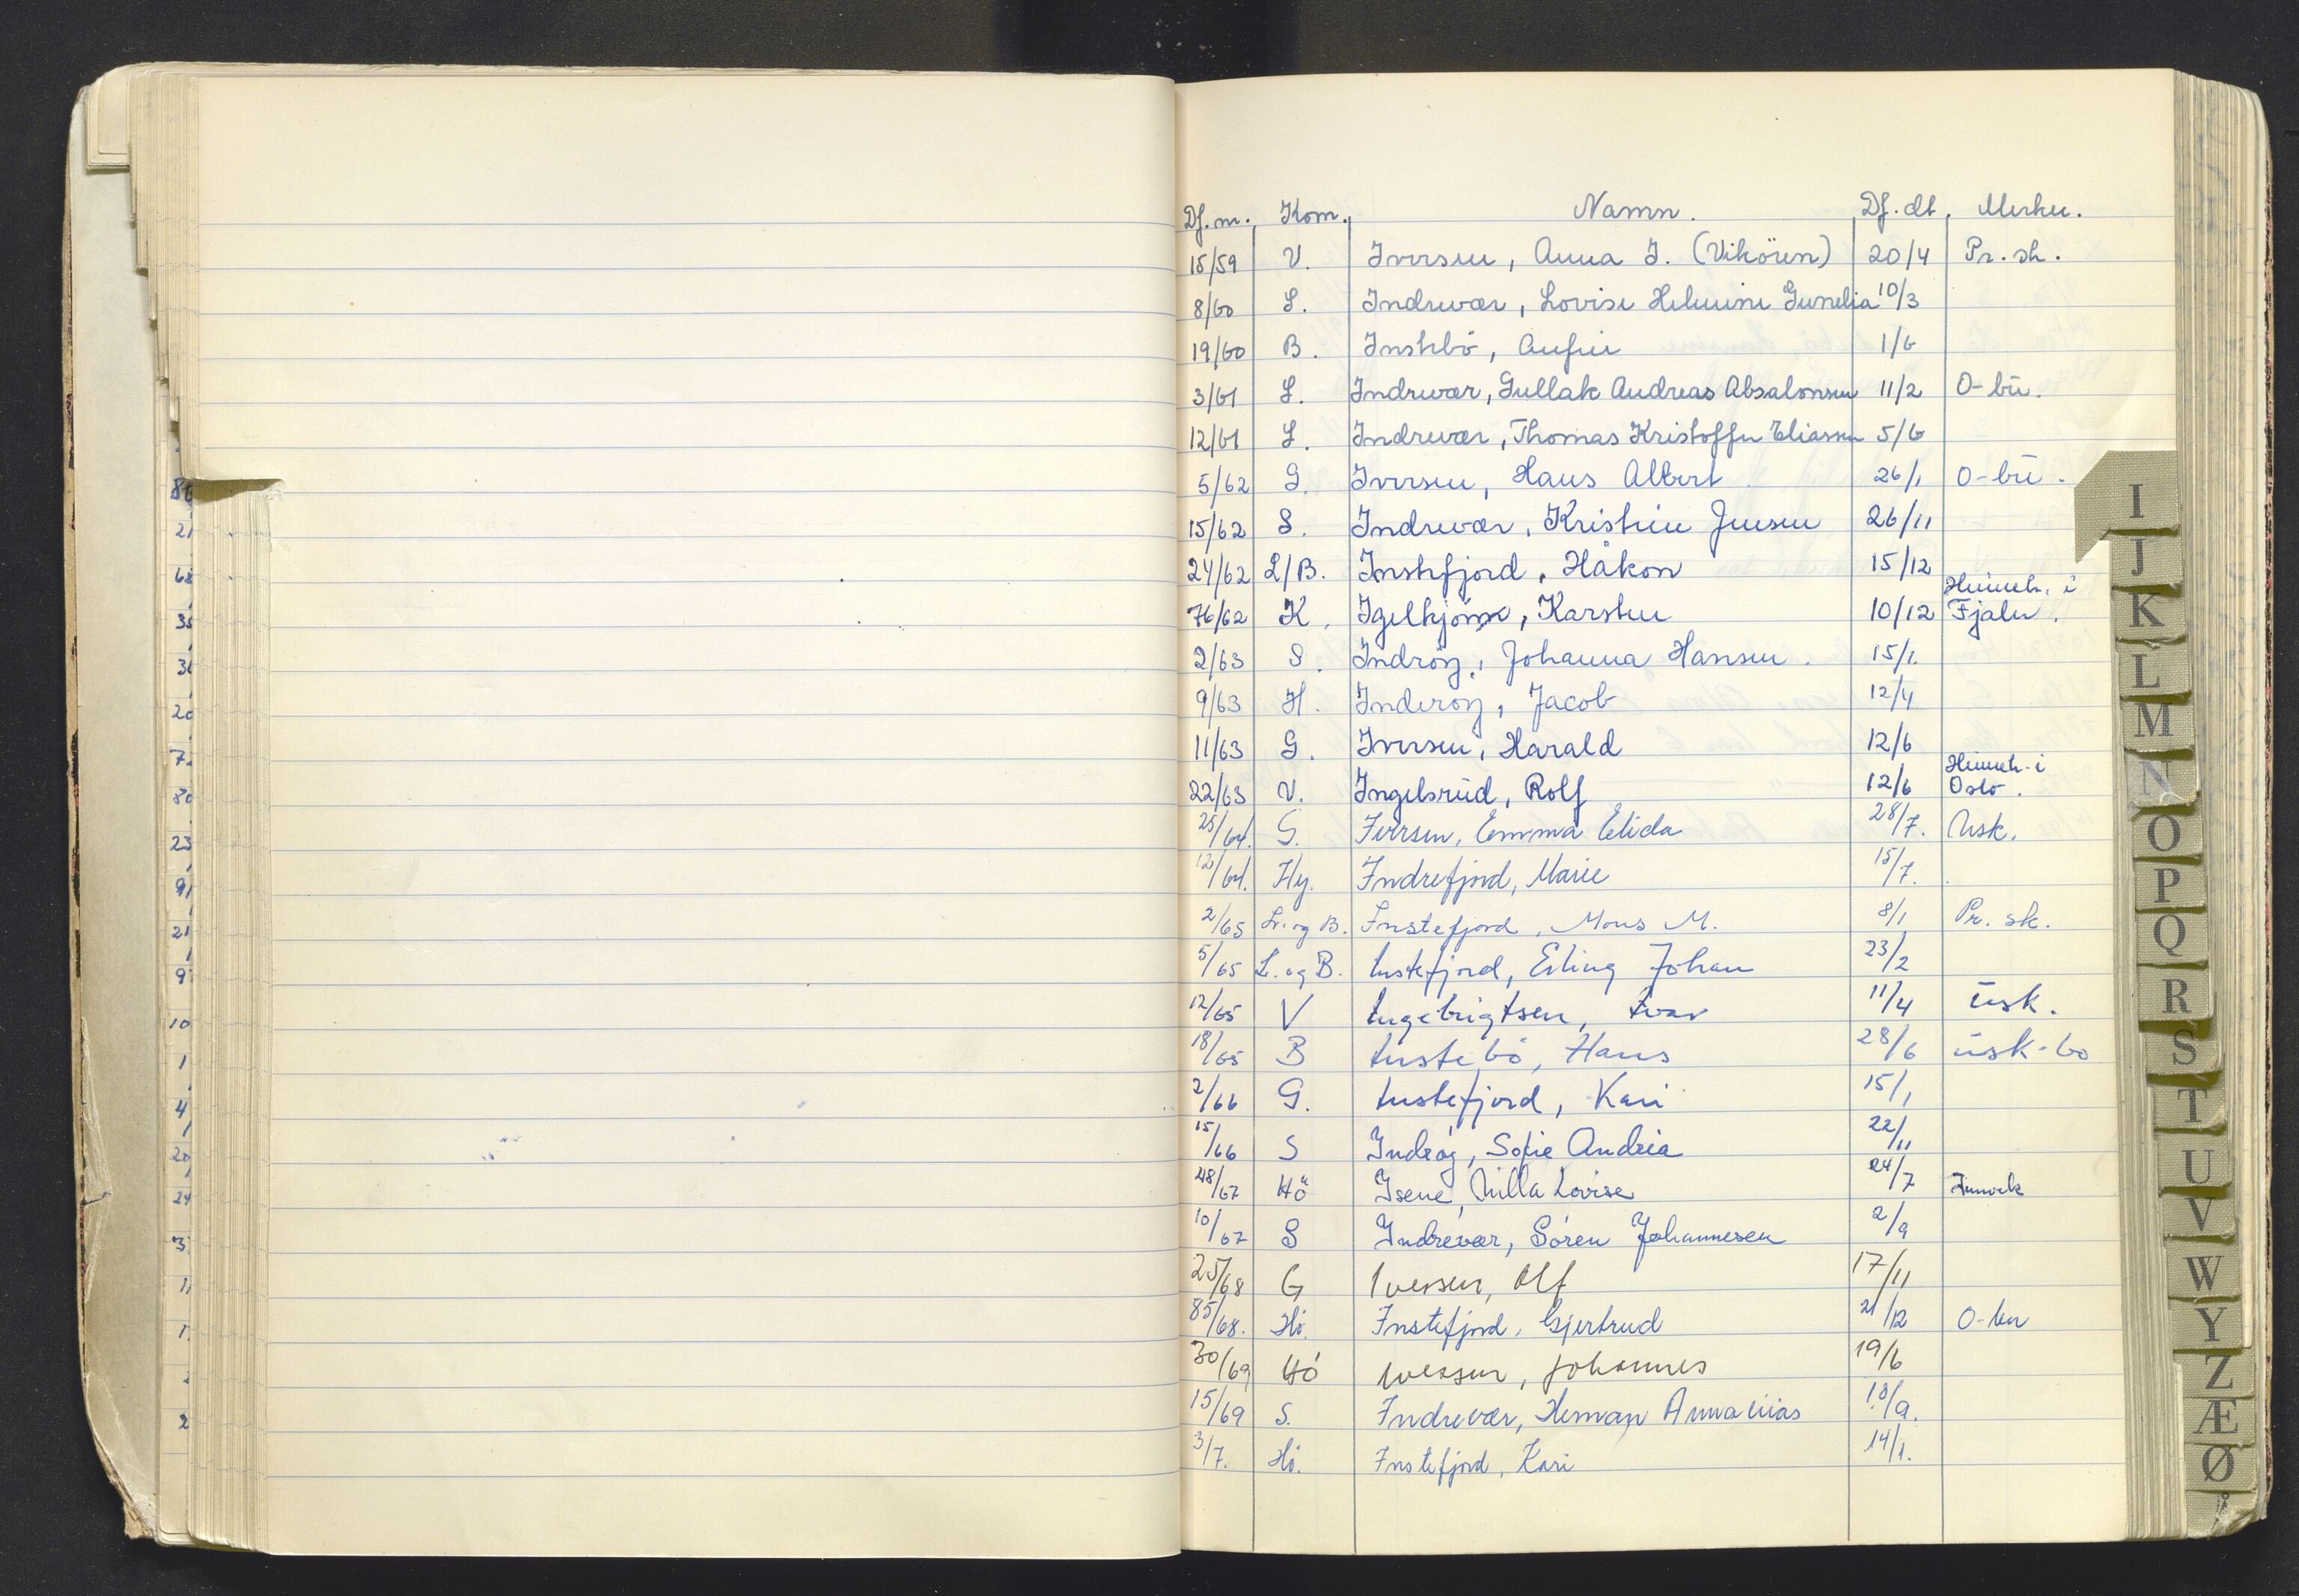 Df. nr. Kom. Namn. Df. dt. Merkn.
15/59 V. Iversen, Anna J. (Vikören) 20/4 Pr. sk.
8/60 S. Indrevær, Lovise Helmine Gunelia 10/3
19/60 B. Instebö, Anfin 1/6
3/61 S. Indrevær, Gullak Andreas Absalonsen 11/2 O-bu.
12/61 S. Indrevær, Thomas Kristoffer Eliassen 5/6
5/62 G. Iversen, Hans Albert 26/1 O-bu.
15/62 S. Indrevær, Kristine Jensen 26/11
24/62 L/B. Instefjord, Håkon 15/12
76/62 K. Igelkjön, Karsten 10/12 Heimeh. i Fjaler.
2/63 S. Indröy, Johanna Hansen. 15/1.
9/63 H. Inderöy, Jacob 12/4
11/63 G. Iversen, Harald 12/6
22/63 V. Ingelsrud, Rolf 12/6 Heimeh. i Oslo.
25/64. G. Iversen, Emma Elida 28/7. Usk.
12/64. Hy. Indrefjord, Marie 15/7.
2/65 L. og B. Instefjord, Mons M. 8/1 Pr. sk.
5/65 L. og B. Instefjord, Erling Johan 23/2
12/65 V Ingebrigtsen, Ivar 11/4 usk.
18/65 B Instebö, Hans 28/6 usk-bo
2/66 G. Instefjord, Kari 15/1
15/66 S Indröy, Sofie Andrea 22/11
48/67 Hö Isene, Milla Lovise 24/7
10/67 S Indrevær, Sören Johannesen 2/9
25/68 G Iversen, Alf 17/11
85/68. Hö. Instefjord, Gjertrud 21/12 O-bu
30/69 Hö Iversen, Johannes 19/6
15/69 S. Indrevær, Herman Annanias 18/9.
3/7. Hö. Instefjord, Kari 14/1.
I
J
K
L
M
N
O
P
Q
R
S
T
U
V
W
Y
Z
Æ
Ø
Å